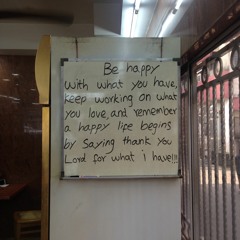 Be happy
with what you have,
keep working on what
you love, and remember
a happy life begins
by saying thank you
Lord for what i have!!!